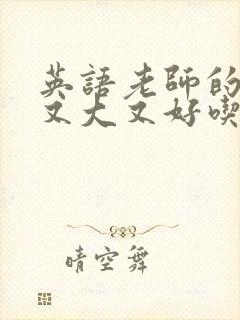 英語老師的
又大又好喫
晴空舞